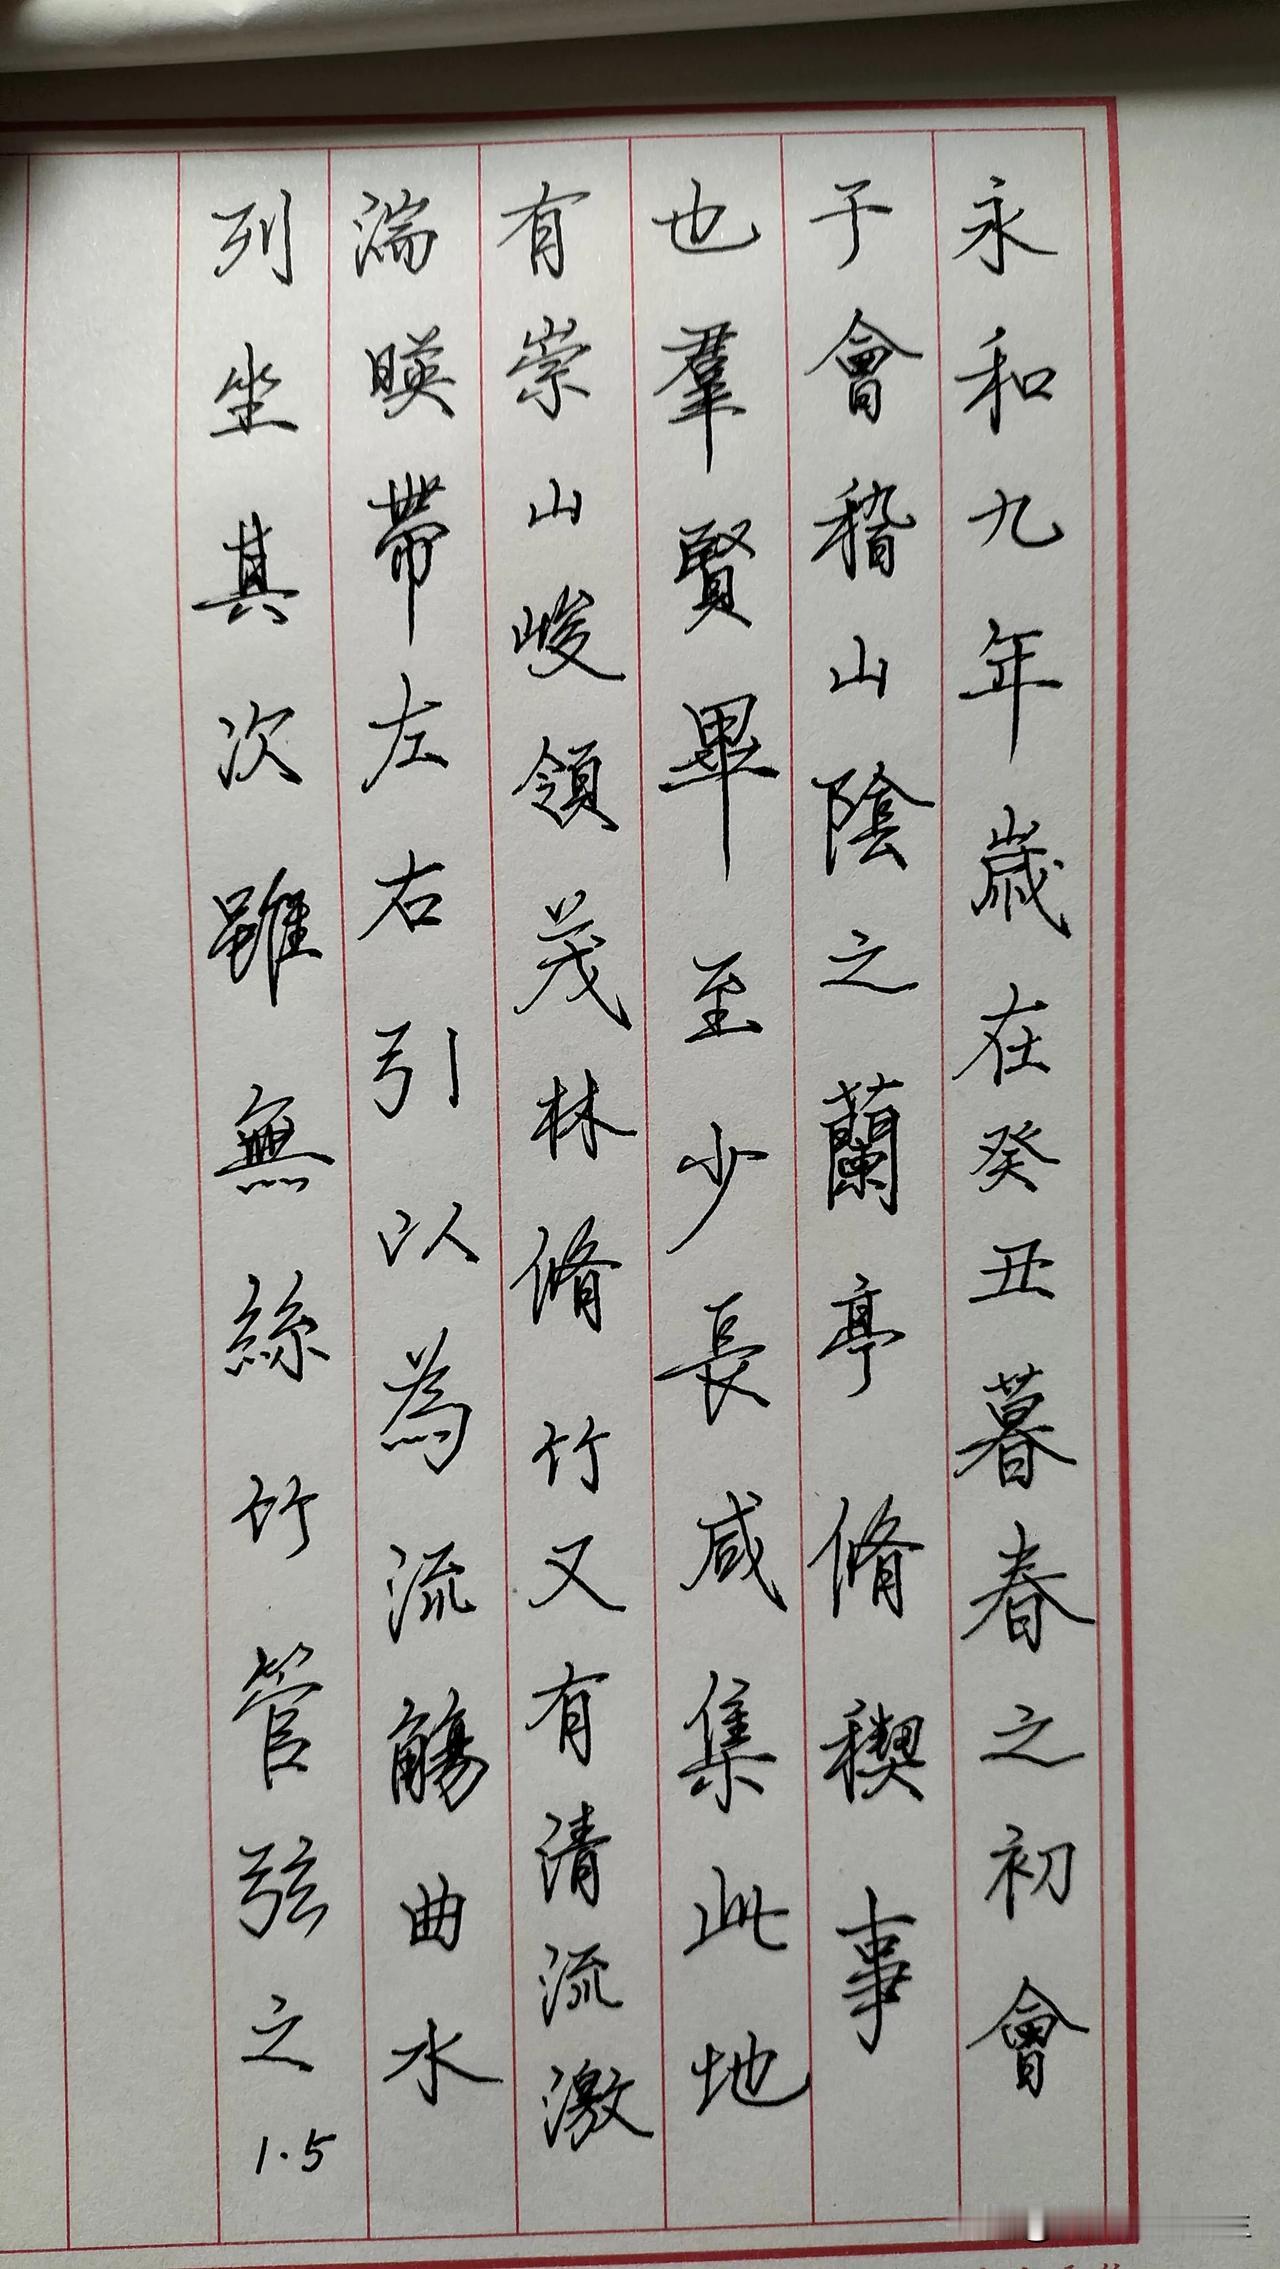 永和九年歲在癸丑暮春之初會
于會稽山陰之蘭亭脩稧事
也羣賢畢至少長咸集此地
有崇山峻領茂林脩竹又有清流激
湍暎帶左右引以為流觴曲水
列坐其次雖無絲竹管弦之
1.5